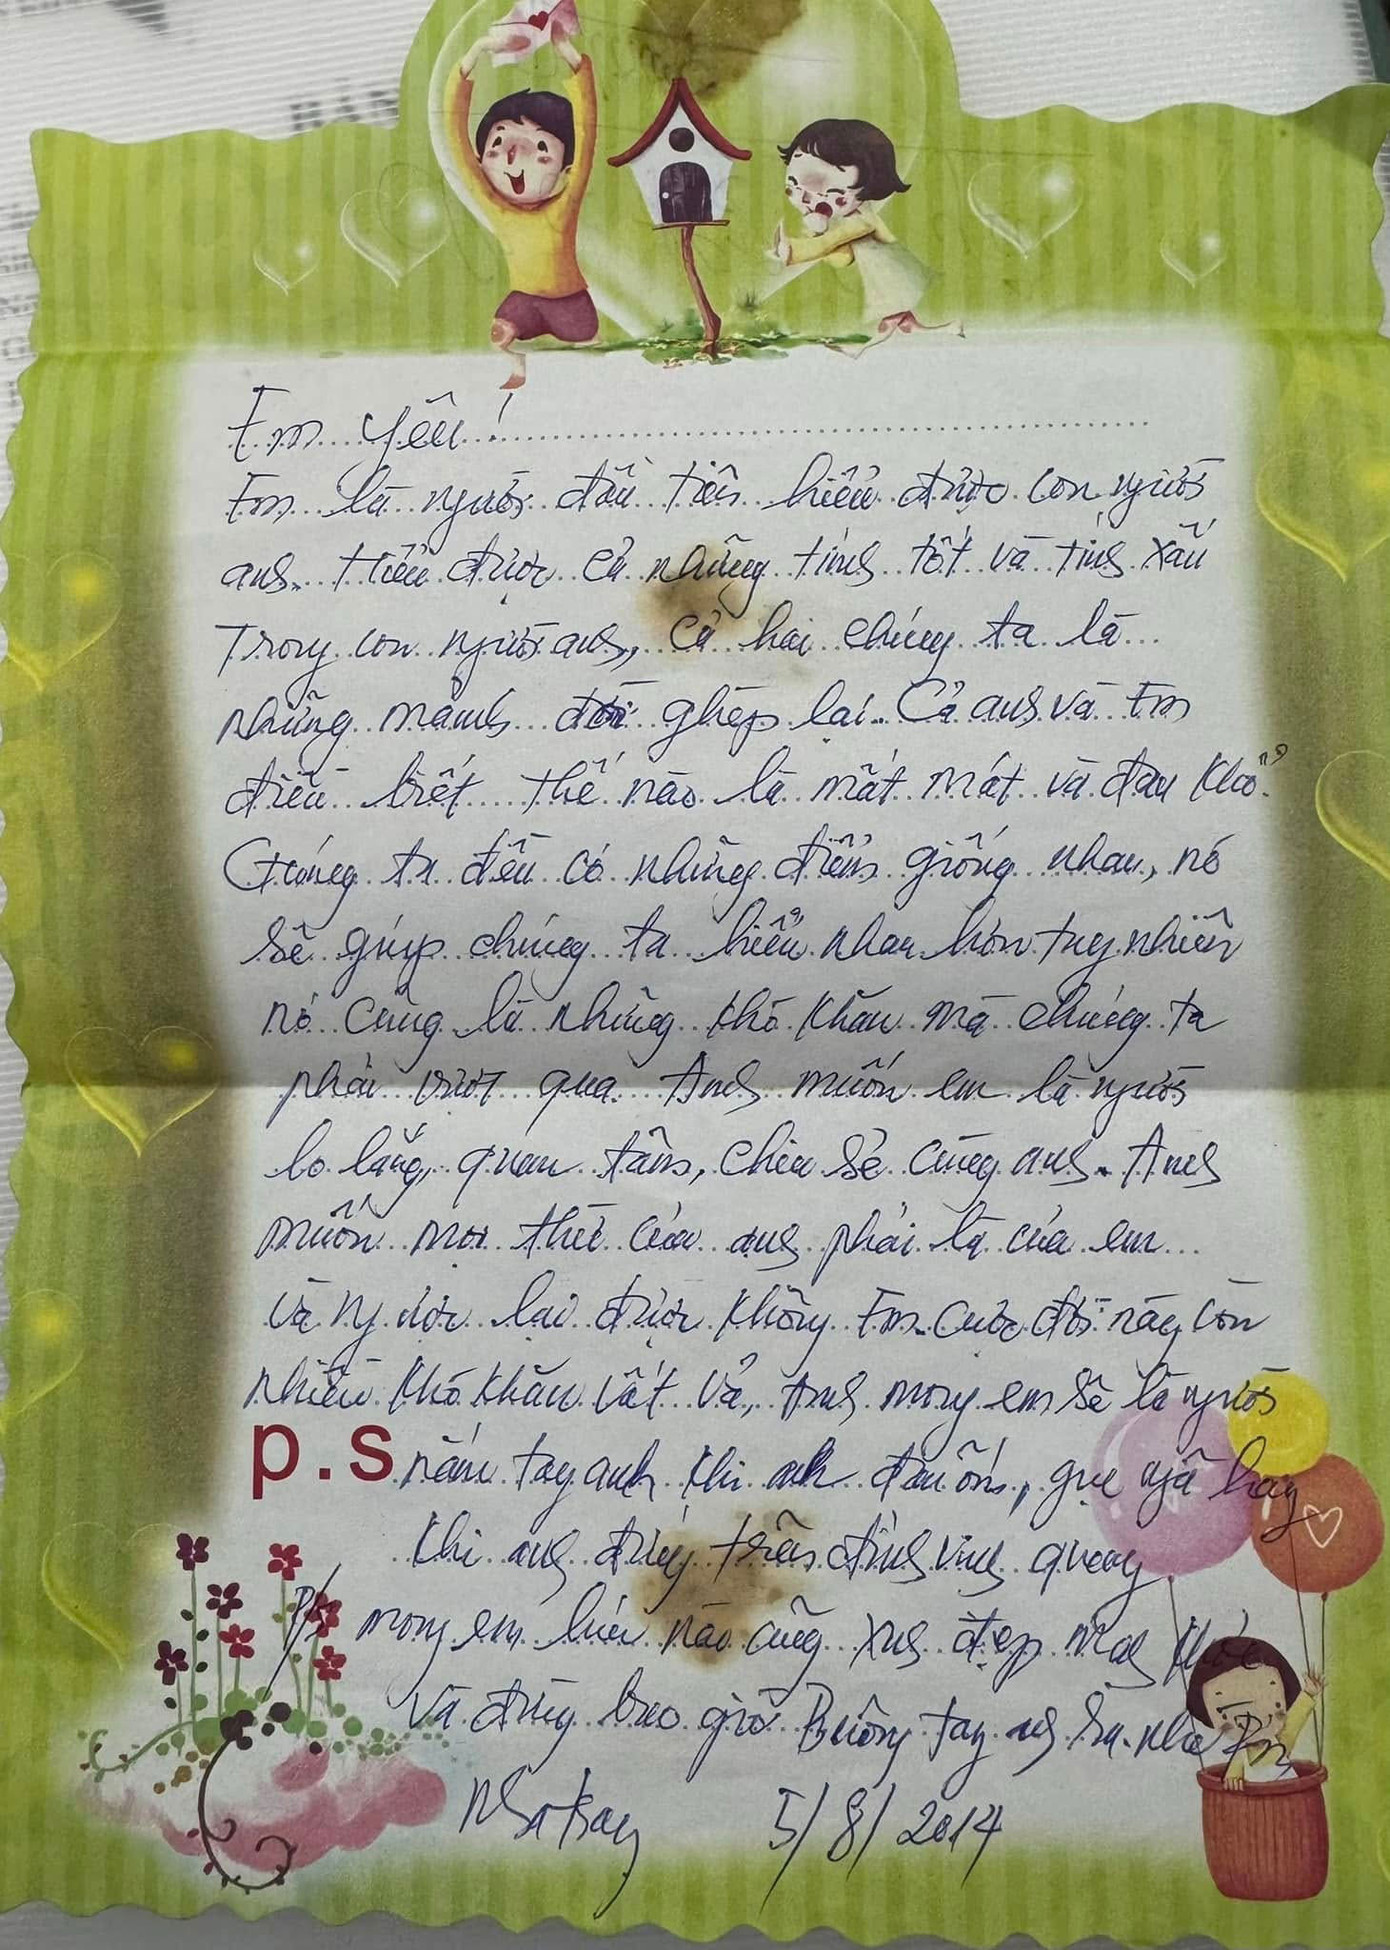 Em yêu!
Em là người đầu tiên hiểu được con người
anh. Hiểu được cả những tính tốt và tính xấu
Trong con người anh, cả hai chúng ta là
những mảnh đời ghép lại. Cả anh và Em
điều biết thế nào là mất mát và đau khổ.
Chúng ta đều có những điểm giống nhau, nó
sẽ giúp chúng ta hiểu nhau hơn tuy nhiên
nó cũng là những khó khăn mà chúng ta
phải vượt qua. Anh muốn em là người
lo lắng, quan tâm, chia sẻ cùng anh. Anh
muốn mọi thứ của anh phải là của em
và ngược lại được không Em. Cuộc đời này còn
nhiều khó khăn vất vả, Anh mong em sẽ là người
p.s nắm tay anh khi anh đau ốm, gục ngã hay
khi anh đứng trên đỉnh vinh quang
P/s mong em lúc nào cũng xinh đẹp mạnh khỏe
Và đừng bao giờ Buông tay anh ra nhé Em
5/8/2014